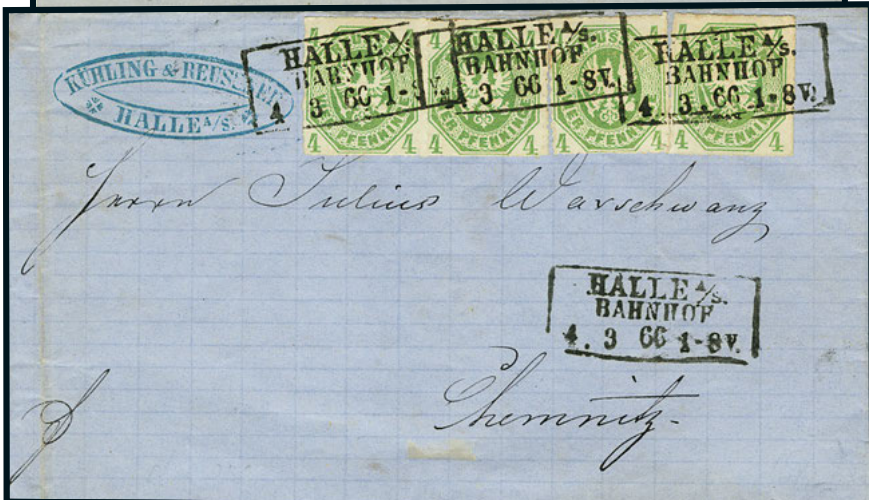 KÜHLING & REUS
HALLE A/S.
4 4 4 4 4
HALLE A/S.
BAHNHOF
4 3 66 1-8V.
HALLE A/S.
BAHNHOF
3 66 1-8V.
HALLE A/S.
BAHNHOF
4. 3. 66 1-8V.
4 PFENNINGE 4
4 PFENNINGE 4
4 PFENNINGE 4
4 PFENNINGE 4
Herrn Julius Warschwanz
HALLE A/S.
BAHNHOF
4. 3 66 1-8V.
Chemnitz.